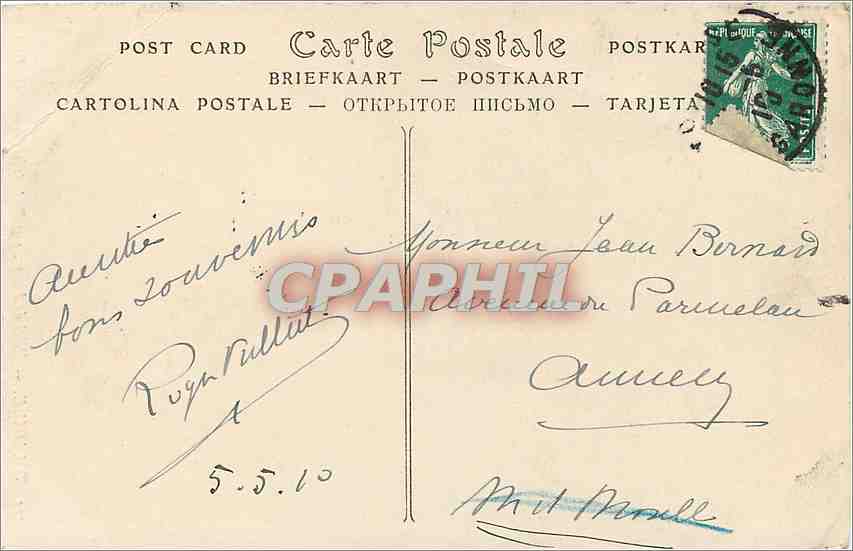 POST CARD Carte Postale POSTKAR
BRIEFKAART — POSTKAART
CARTOLINA POSTALE — ОТКРЫТОЕ ПИСЬМО — TARJETA
RÉPUBLIQUE FRANÇAISE
10 15
16 5
Amitié
bons souvenirs
Roger
5.5.10
CPAPHIL
Monsieur Jean Bernard
Avenue du Parmelan
Annecy